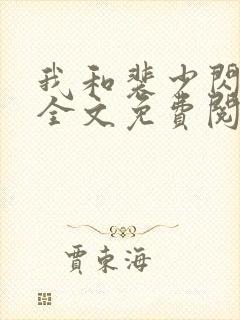 我和裴少閃
全文免費閱
賈東海